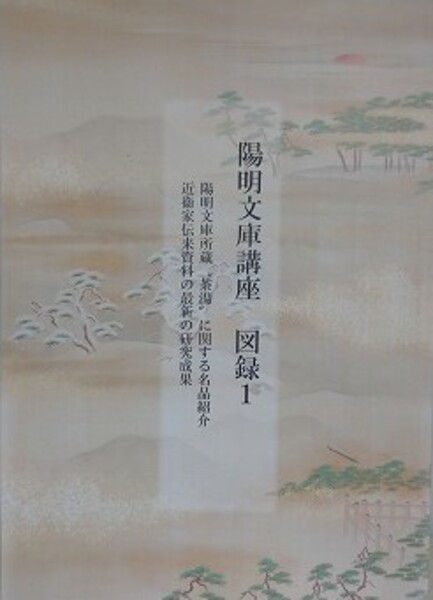 陽明文庫講座　図録1
陽明文庫所蔵“茶湯”に関する名品紹介
近衞家伝来資料の最新の研究成果